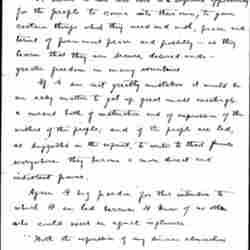 for the people to come into their own, to gain
certain things which they need and wish, from such
of permanent peace and possibly — as they
learn that they can secure desired ends —
greater freedom in many countries.
If I am not greatly mistaken it would be
an easy matter to get up great needs meetings
a means both of instruction and of expression of the
wishes of the people; and if the people are led,
as suggested in the reprint, to write to their friends
everywhere they become a more direct and
insistent power.
Again I beg pardon for this intrusion to
which I am led because I know of no other
who could exert an equal influence.
With the expression of my sincere